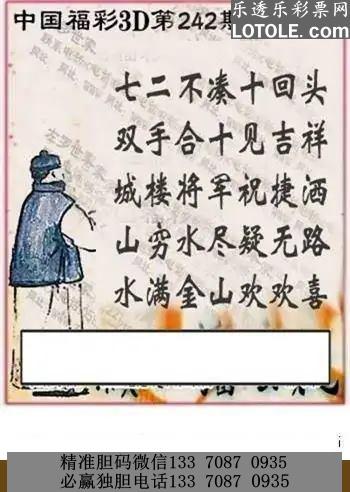 乐透乐彩票网
中国福彩3D第242期
LOTOLE.COM
七二不凑十回头
双手合十见吉祥
城楼将军祝捷洒
山穷水尽疑无路
水满金山欢欢喜
精准胆码微信133 7087 0935
必赢独胆电话133 7087 0935